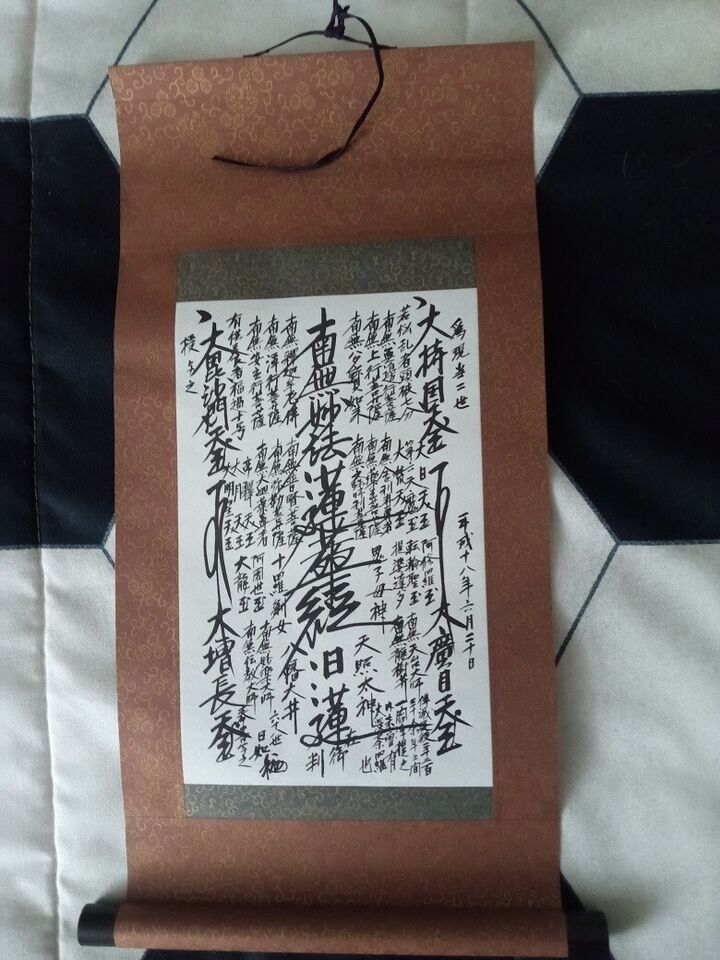 為現当二世
平成十八年六月二十日
大持国天王
大廣目天王
若悩乱者頭破七分
南無無邊行菩薩
南無上行菩薩
南無多寳如来
大日天王
第六天魔王
大梵天王
南無舎利弗尊者
阿修羅王
轉輪聖王
提婆達多
鬼子母神
南無天台大師
南無龍樹菩薩
天照太神
仏滅後二千二百
三十余年之間
一閻浮提之
内未曽有
大曼荼羅
也
南無妙法蓮華経
日蓮
在御判
南無釋迦牟尼佛
南無浄行菩薩
南無安立行菩薩
有供養者福過十号
南無普賢菩薩
南無弥勒菩薩
南無大迦葉尊者
帝釋天王
大月天王
大明星天王
十羅刹女
阿闍世王
大龍王
八幡大菩薩
南無妙楽大師
南無伝教大師
六十七世
日顕
大毘沙門天王
大増長天王
授与之